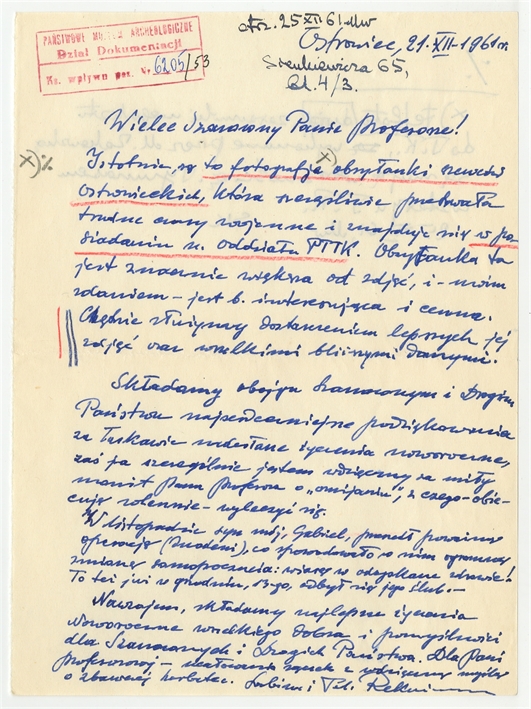 otrz. 25 XII 61 MW
PAŃSTWOWE MUZEUM ARCHEOLOGICZNE
Dział Dokumentacji
Ks. wpływu poz. Nr 6205/53
Ostrowiec, 21. XII-1961 r.
Sienkiewicza 65,
bl. 4/3.
Wielce Szanowny Panie Profesorze!
x)
Istotnie, są to fotografje obsyłanki szewców
Ostrowieckich, która szczęśliwie przetrwała
trudne czasy wojenne i znajduje się w po-
siadaniu n. oddziału PTTK. Obsyłanka ta
jest znacznie większa od zdjęć, i – moim
zdaniem – jest b. interesująca i cenna.
Chętnie służymy dostarczeniem lepszych jej
zdjęć oraz wszelkimi bliższymi danymi.
Składamy obojgu Szanownym i Drogim
Państwu najserdeczniejsze podziękowania
za łaskawie nadesłane życzenia noworoczne,
zaś ja szczególnie jestem wdzięczny za miły
monit Pana Profesora o „omijaniu”, z czego – obie-
cuję solennie – wyleczyć się.
W listopadzie syn mój, Gabriel, przeszedł poważną
operację (), co spowodowało w nim ogromną
zmianę samopoczucia: wiarę w odzyskane zdrowie!
To też już w grudniu, 13-go, odbył się jego ślub. –
Nawzajem, składamy najlepsze życzenia
Noworoczne wszelkiego dobra i pomyślności
dla Szanownych i Drogich Państwa. Dla Pani
Profesorowej – ucałowania rączek z wdzięczną myślą
o zbawczej herbatce.